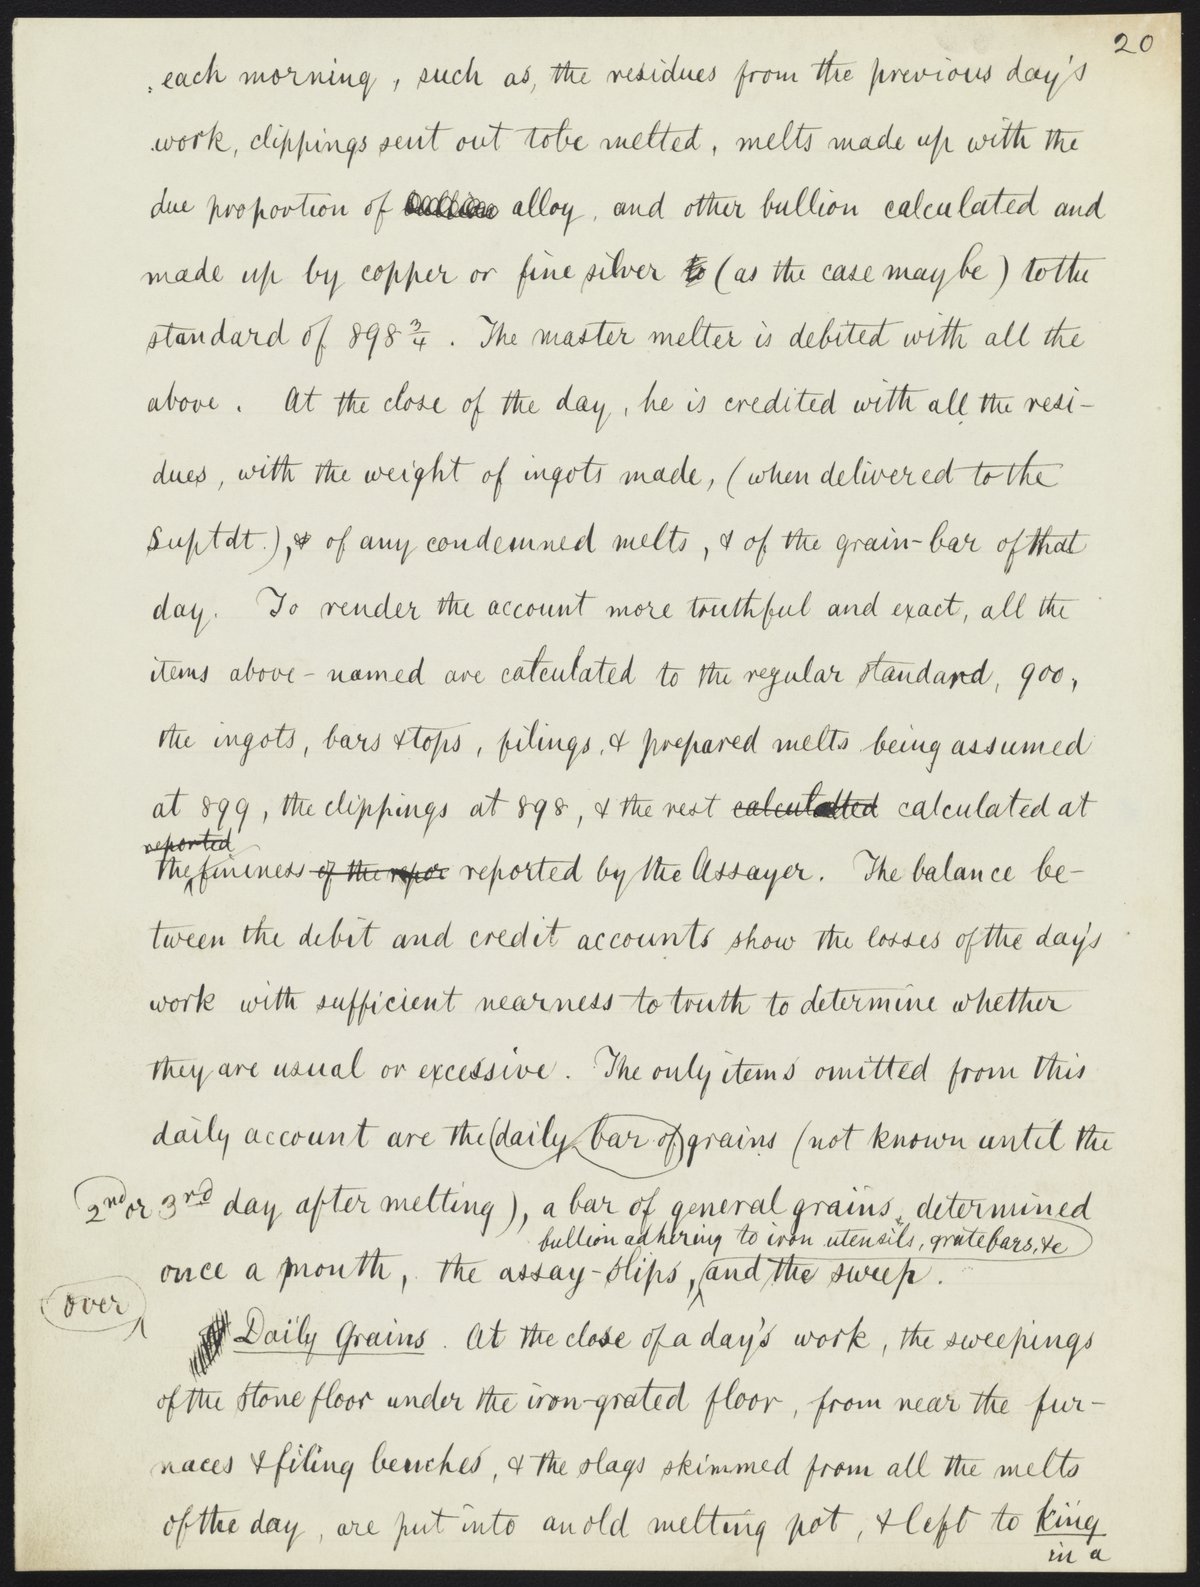 20
each morning, such as, the residues from the previous day's
work, clippings sent out to be melted, melts made up with the
due proportion of bullion alloy, and other bullion calculated and
made up by copper or fine silver to (as the case may be) to the
standard of 898 3/4. The master melter is debited with all the
above. At the close of the day, he is credited with all the resi-
dues, with the weight of ingots made, (when delivered to the
Suptdt.), & of any condemned melts, & of the grain-bar of that
day. To render the account more truthful and exact, all the
items above-named are calculated to the regular standard, 900,
the ingots, bars & tops, filings, & prepared melts being assumed
at 899, the clippings at 898, & the rest calculated calculated at
reported
the fineness of the repor reported by the Assayer. The balance be-
tween the debit and credit accounts show the losses of the day's
work with sufficient nearness to truth to determine whether
they are usual or excessive. The only items omitted from this
daily account are the (daily bar of) grains (not known until the
2nd or 3rd day after melting), a bar of general grains, determined
bullion adhering to iron utensils, gratebars, &c
once a month, the assay-slips, and the sweep.
over
Daily Grains. At the close of a day's work, the sweepings
of the stone floor under the iron-grated floor, from near the fur-
naces & filing benches, & the slags skimmed from all the melts
of the day, are put into an old melting pot, & left to king
in a